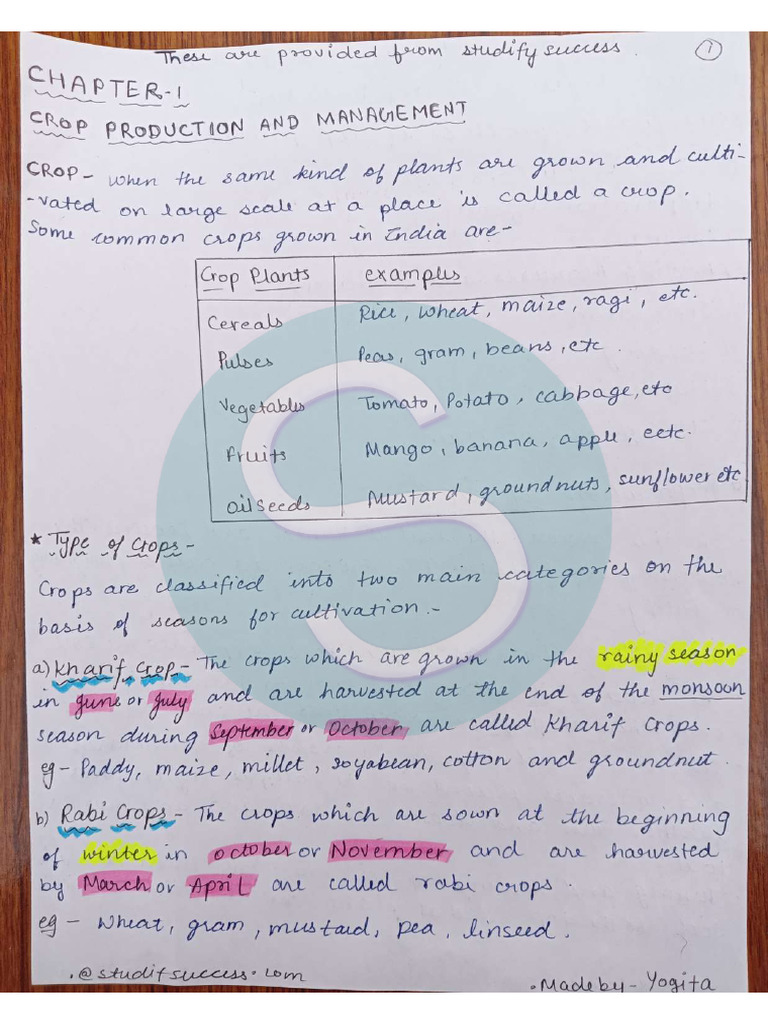 These are provided from studify success. 1
CHAPTER-1
CROP PRODUCTION AND MANAGEMENT
CROP- when the same kind of plants are grown and culti-
-vated on large scale at a place is called a crop.
Some common crops grown in India are-
Crop Plants examples
Cereals Rice, wheat, maize, ragi, etc.
Pulses Peas, gram, beans, etc.
Vegetables Tomato, Potato, cabbage, etc
fruits Mango, banana, apple, eetc.
oilseeds Mustard, groundnuts, sunflower etc
* Type of Crops-
Crops are classified into two main categories on the
basis of seasons for cultivation.-
a) Kharif Crop- The crops which are grown in the rainy season
in june or july and are harvested at the end of the monsoon
season during September or October are called Kharif Crops.
eg- Paddy, maize, millet, soyabean, cotton and groundnut.
b) Rabi Crops- The crops which are sown at the beginning
of winter in october or November and are harvested
by March or April are called rabi crops.
eg- wheat, gram, mustard, pea, linseed.
.@studifsuccess.com
.Made by- Yogita